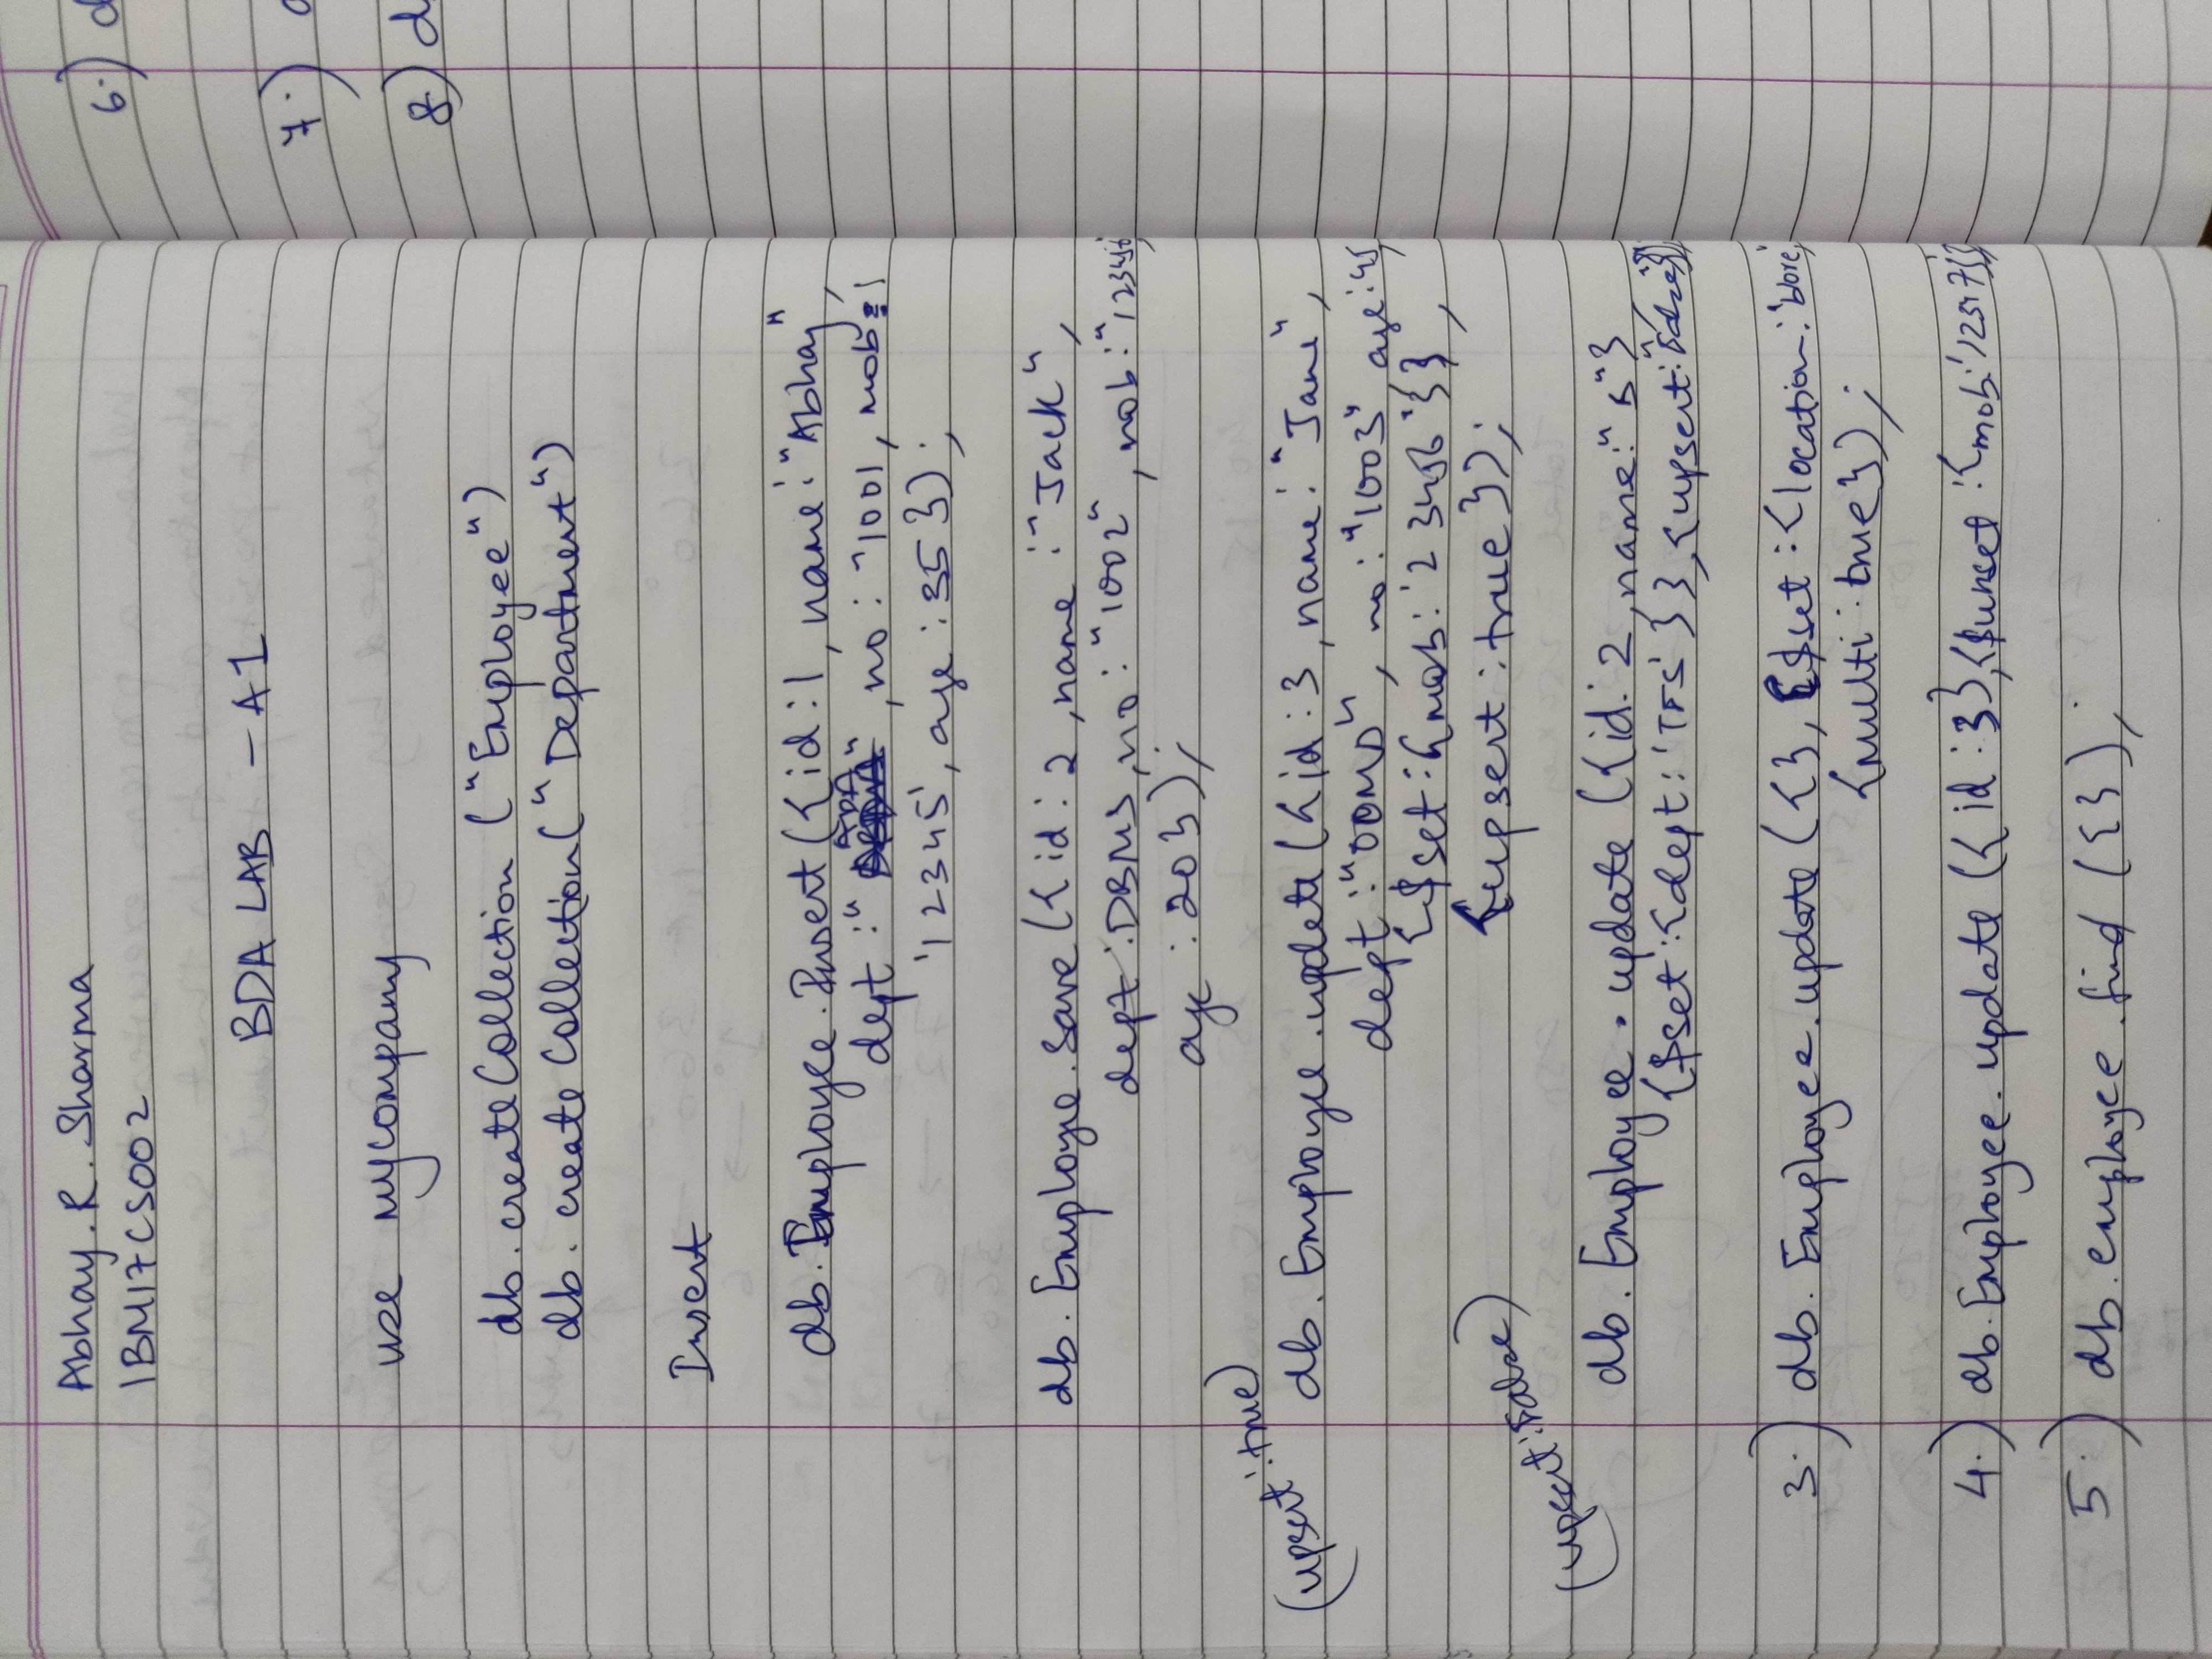 Abhay. R. Sharma
1BM17CS002
BDA LAB - A1
use mycompany
db. createCollection ("Employee")
db. create Collection("Department")
Insert
db. Employee. Insert({id:1, name:"Abhay",
dept: "ADA", no: "1001, mob:
'12345', age: 35 3);
db. Employe. Save ({id: 2, name: "Jack",
dept: DBMS, no: "1002", mob:"123456
age: 203);
(upsert: true) db. Employe. update ({id: 3, name: "Jane",
dept: "OOMD", no: "1003" age: 45
{$set: {mob: '23456'}},
{upsert: true});
(upsert: False) db. Employee. update ({id: 2, name: "B"},
{$set: {dept: 'TFS'}}, {upsert:
3.) db. Employee. update ({}, {$set: {location: 'blore'
{multi: true});
4.) db. Employee. update ({id: 3}, {$unset: {mob:
5.) db. employee. find ({});
6.) d
7.)
8) d